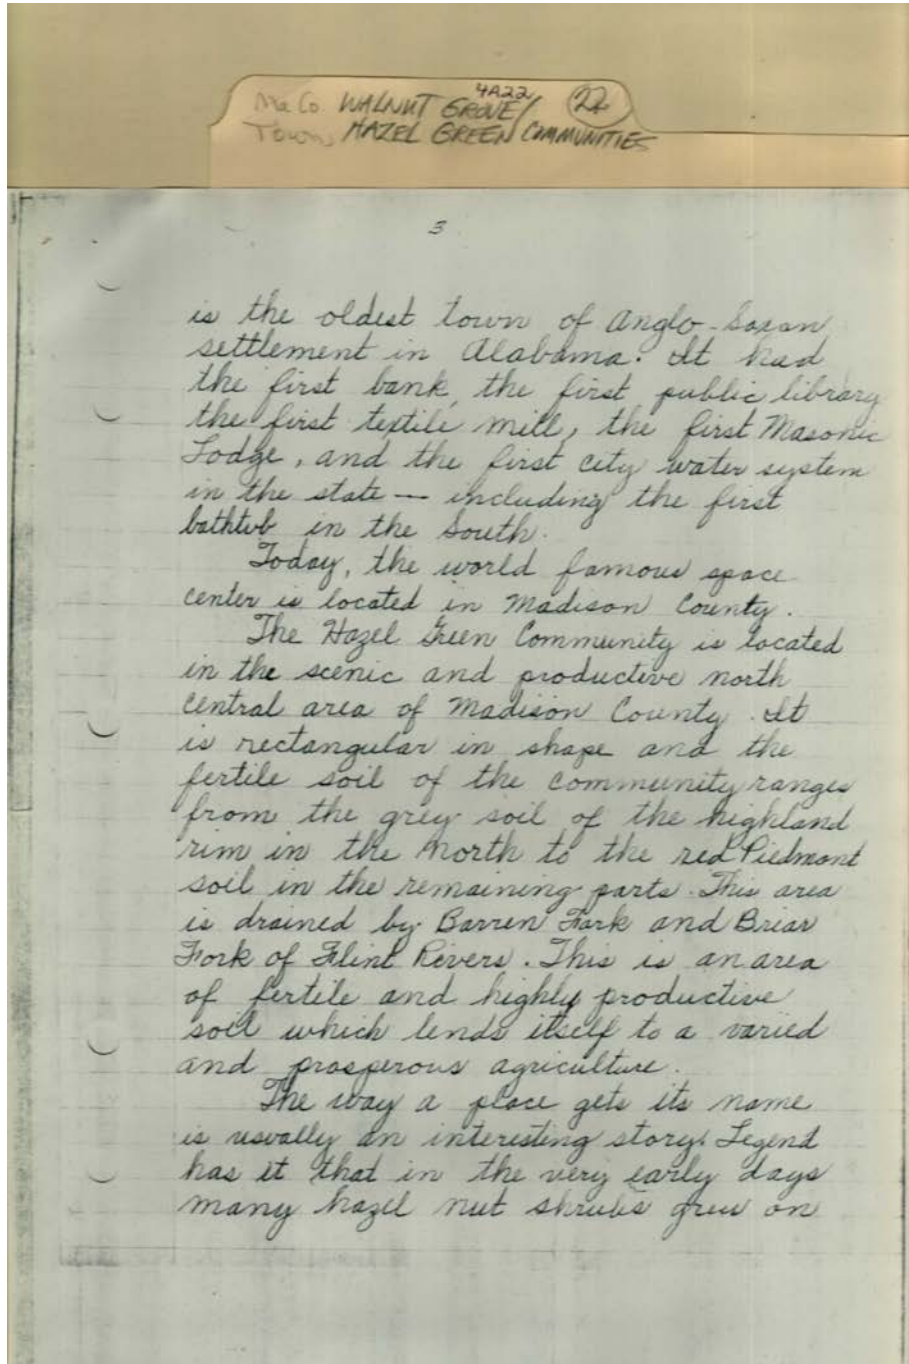 4A22
Ma Co. WALNUT GROVE/ 22
Town HAZEL GREEN COMMUNITIES
3
is the oldest town of Anglo-Saxon
settlement in Alabama. It had
the first bank, the first public library
the first textile mill, the first Masonic
Lodge, and the first city water system
in the state — including the first
bathtub in the South.
Today, the world famous space
center is located in Madison County.
The Hazel Green Community is located
in the scenic and productive north
central area of Madison County. It
is rectangular in shape and the
fertile soil of the community ranges
from the grey soil of the highland
rim in the north to the red Piedmont
soil in the remaining parts. This area
is drained by Barren Fork and Briar
Fork of Flint Rivers. This is an area
of fertile and highly productive
soil which lends itself to a varied
and prosperous agriculture.
The way a place gets its name
is usually an interesting story. Legend
has it that in the very early days
many hazel nut shrubs grew on